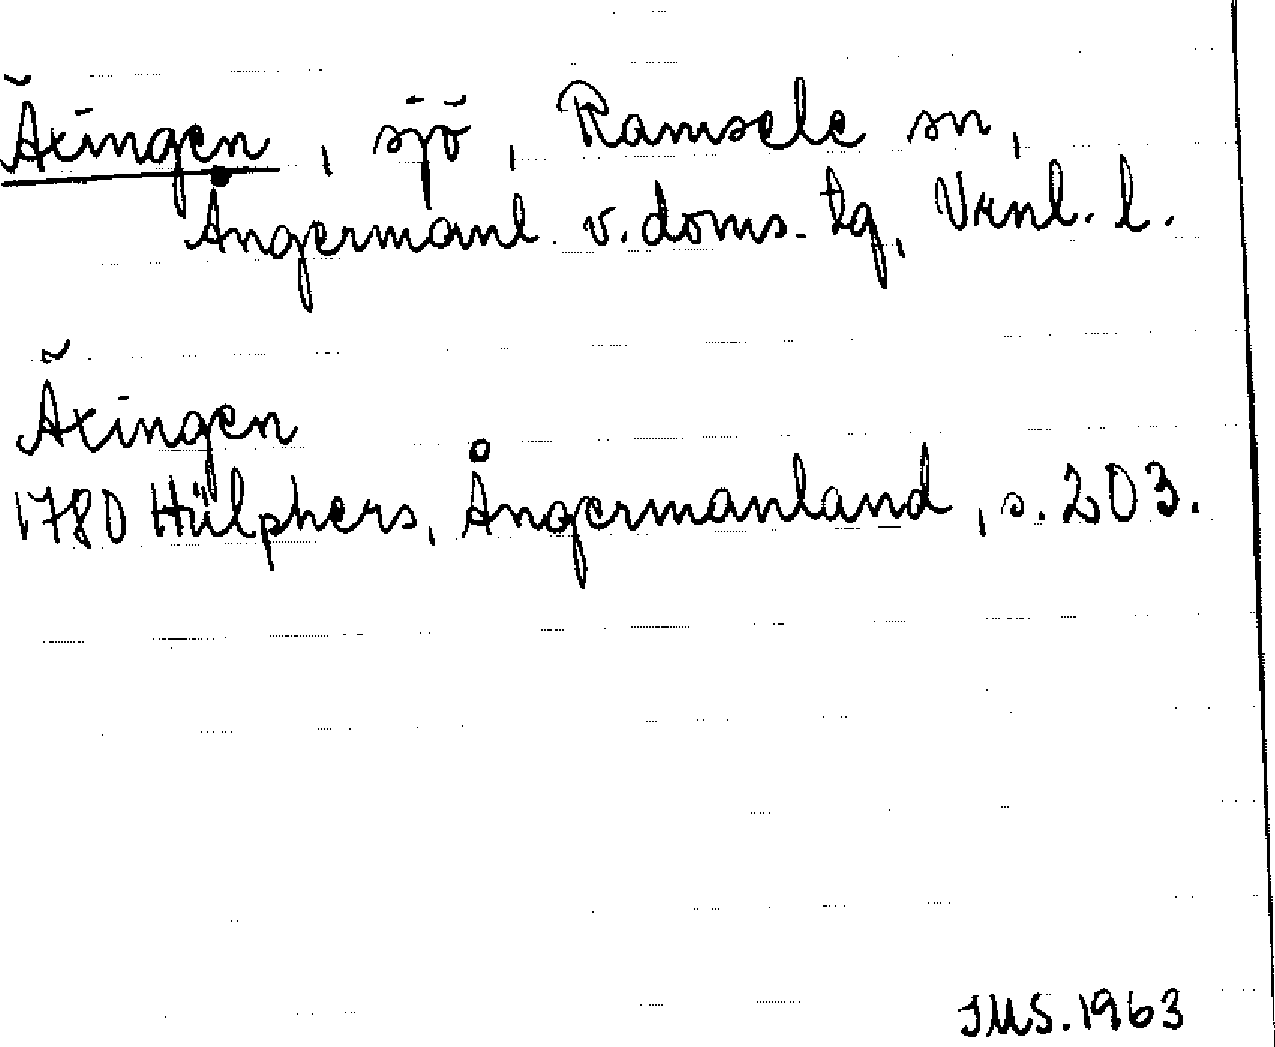 Äxingen, sjö, Ramsele sn,
Ångermanl. v. doms. tg, Vrnl. l.
Äxingen
1780 Hülphers, Ångermanland, s. 203.
IMS. 1963